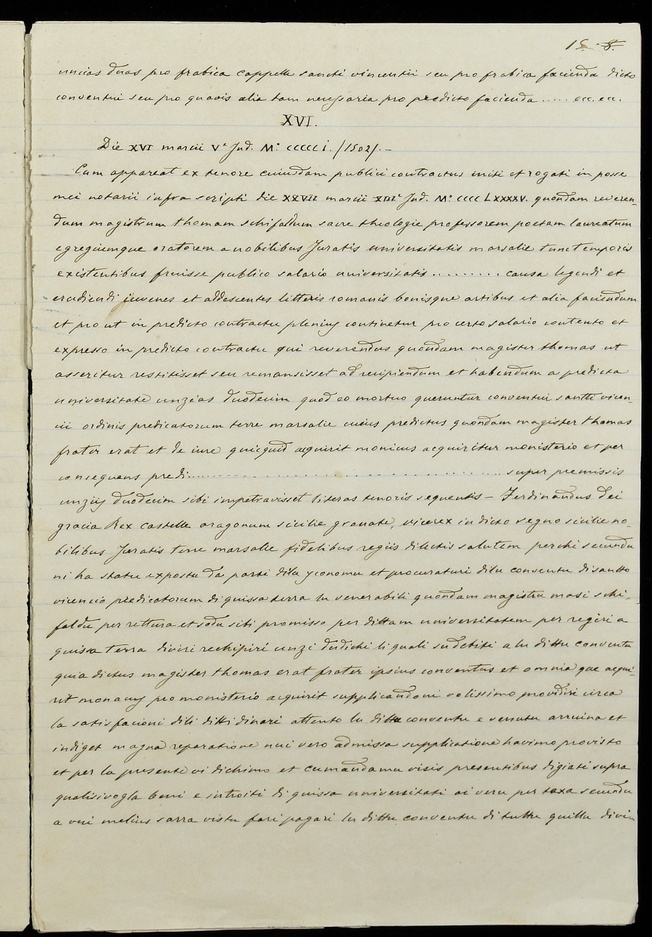 uncias duas pro frabica cappelle sancti vincentii seu pro frabica facienda dicto
conventui seu pro quavis alia tam necessaria pro predicto facienda ..... ecc. ecc.
XVI.
Die XVI marcii Vᵉ Ind. Mº ccccc i. /1502/. —
Cum appareat ex tenore cuiusdam publici contractus initi et rogati in posse
mei notarii infra scripti die XXVII marcii XIIIᵉ Ind. Mº cccc LXXXXV. quondam reveren-
dum magistrum thomam schifaldum sacre theologie professorem poetam laureatum
egregiumque oratorem a nobilibus Juratis universitatis marsalie tunc temporis
existentibus fruisse publico salario universitatis ......... causa legendi et
erudiendi juvenes et adolescentes litteris romanis bonisque artibus et alia faciendum
et prout in predicto contractu plenius continetur pro certo salario contento et
expresso in predicto contractu qui reverendus quondam magister thomas ut
asseritur restitisset seu remansisset ad recipiendum et habendum a predicta
universitate unzias duodecim quod eo mortuo queruntur conventui sancti vincen-
tii ordinis predicatorum terre marsalie cuius predictus quondam magister thomas
frater erat et de iure quicquid acquirit monicus acquiritur monisterio et per
consequens predi.............................................. super premissis
unziis duodecim sibi impetravisset literas tenoris sequentis — Ferdinandus dei
gracia Rex castelle aragonum sicilie granate, vicerex in dicto regno sicilie no-
bilibus Juratis terre marsalie fidelibus regiis dilectis salutem perchi secundu
ni ha statu expostu da parti dilu yconomu et procuraturi dilu conventu di santto
vicencio predicatorum di quissa terra lu venerabili quondam magistru masi schi-
faldu per lettura et sodu siti promisso per dittam universitatem per regiri a
quissa terra diviri rechipiri unzi dudichi li quali su debiti a lu dittu conventu
quia dictus magister thomas erat frater ipsius conventus et omnia que acqui-
rit monacus pro monisterio acquirit supplicandoni volissimo providiri circa
la satisfacioni dili ditti dinari attento lu dittu conventu e venutu arruina et
indiget magna reparatione nui vero admissa supplicatione havimo provisto
et per la presente vi dichimo et cumandamu visis presentibus digiati supra
qualsivogla beni e introiti di quissa universitati oi veru per taxa secundu
a vui melius sarra vistu fari pagari lu dittu conventu di tuttu quillu divi-